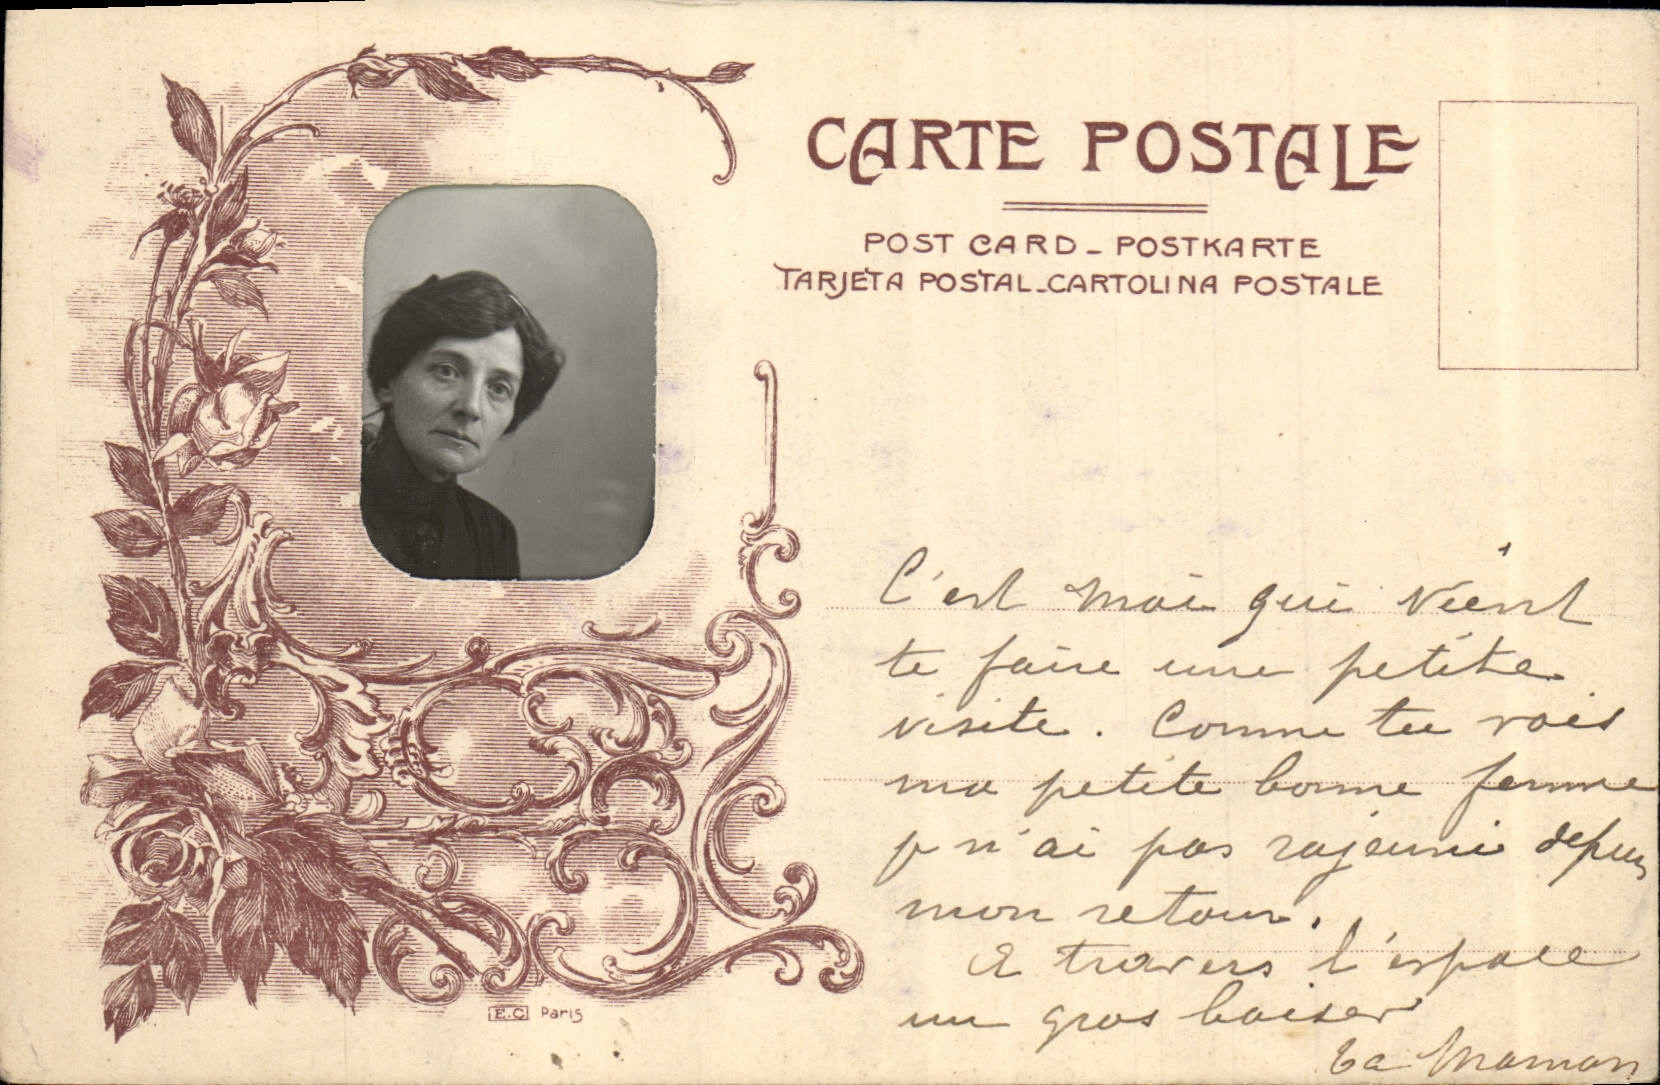 CARTE POSTALE
POST CARD - POSTKARTE
TARJETA POSTAL - CARTOLINA POSTALE
C'est moi qui vient
te faire une petite
visite. Comme tu vois
ma petite bonne femme
je n'ai pas rajeuni depuis
mon retour.
A travers l'espace
un gros baiser
ta Maman
E.C Paris